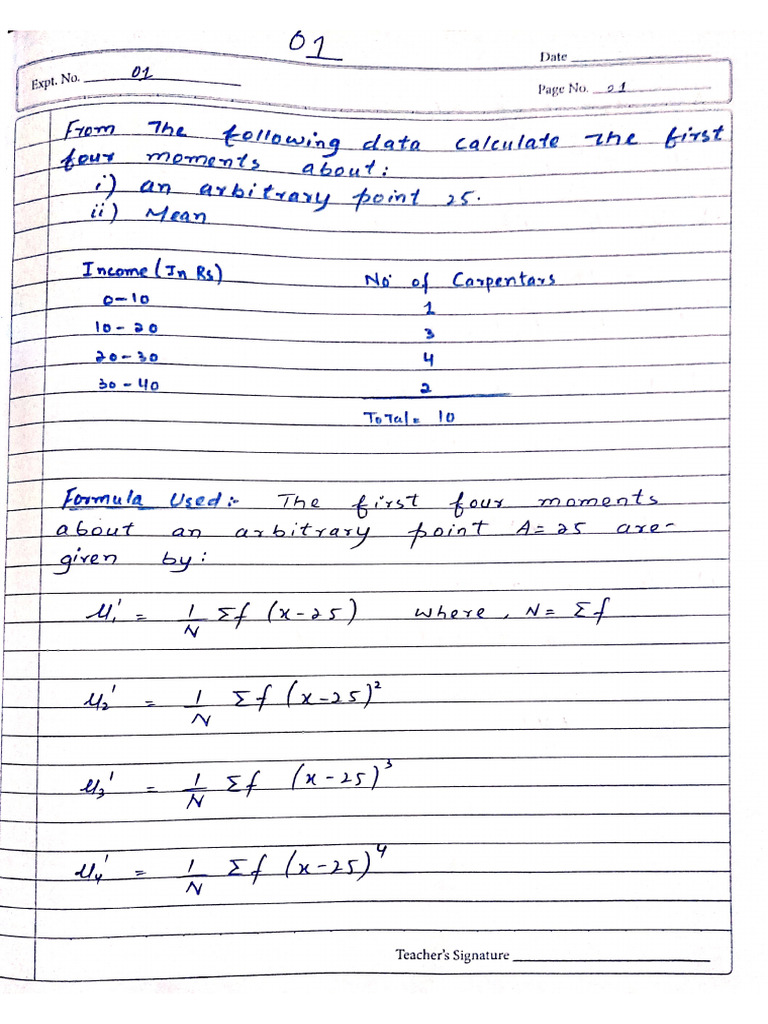 01
Date
Expt. No. 01
Page No. 01
From The following data calculate The first
four moments about:
i) an arbitrary point 25.
ii) Mean
Income (In Rs) No of Carpentars
0-10 1
10-20 3
20-30 4
30-40 2
Total= 10
Formula Used:- The first four moments
about an arbitrary point A=25 are-
given by:
μ₁' = 1/N Σf (x-25) where, N= Σf
μ₂' = 1/N Σf (x-25)²
μ₃' = 1/N Σf (x-25)³
μ₄' = 1/N Σf (x-25)⁴
Teacher's Signature